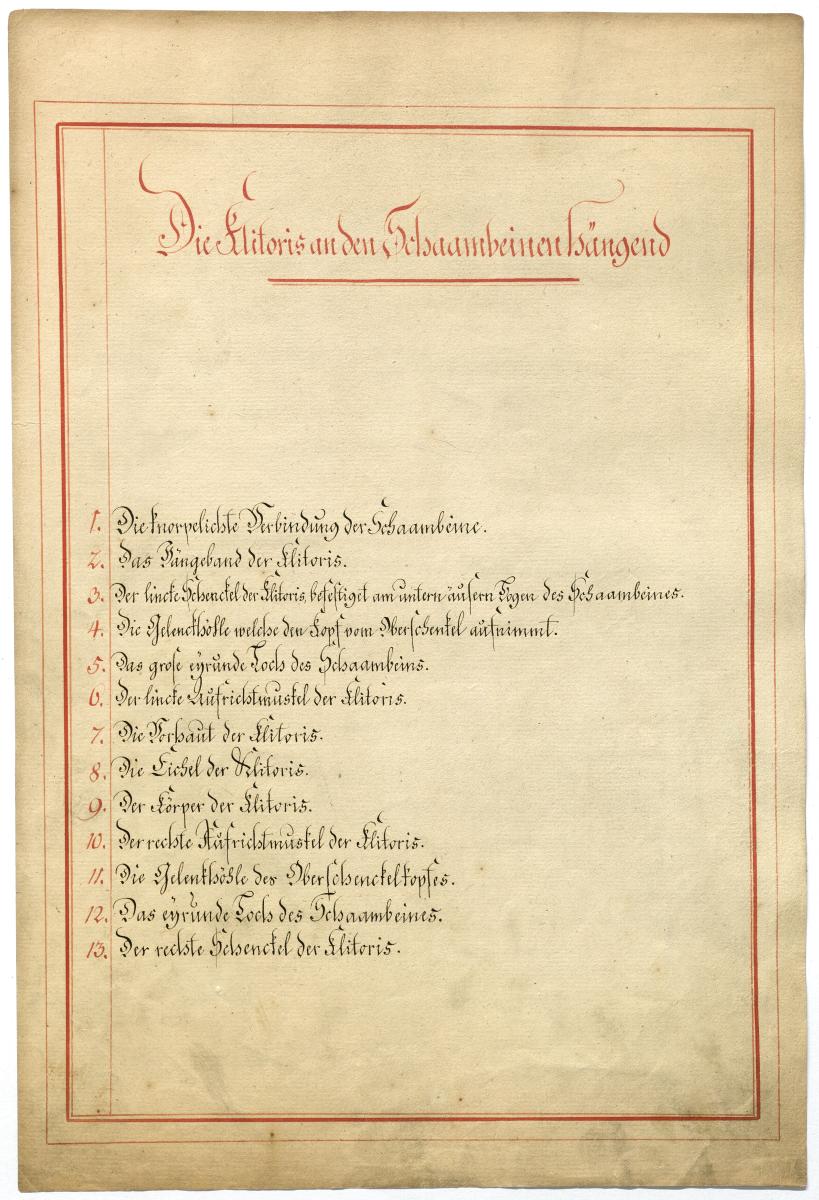 Die Klitoris an den Schaambeinen hängend
1. Die knorpelichte Verbindung der Schaambeine.
2. Das Hängeband der Klitoris.
3. Der lincke Schenckel der Klitoris, befestiget am untern äusern Bogen des Schaambeines.
4. Die Gelenckhöhle welche den Kopf vom Oberschenkel aufnimmt.
5. Das grose eyrunde Loch des Schaambeins.
6. Der lincke Aufrichtmuskel der Klitoris.
7. Die Vorhaut der Klitoris.
8. Die Eichel der Klitoris.
9. Der Körper der Klitoris.
10. Der rechte Aufrichtmuskel der Klitoris.
11. Die Gelenkhöhle des Oberschenckelkopfes.
12. Das eyrunde Loch des Schaambeines.
13. Der rechte Schenckel der Klitoris.